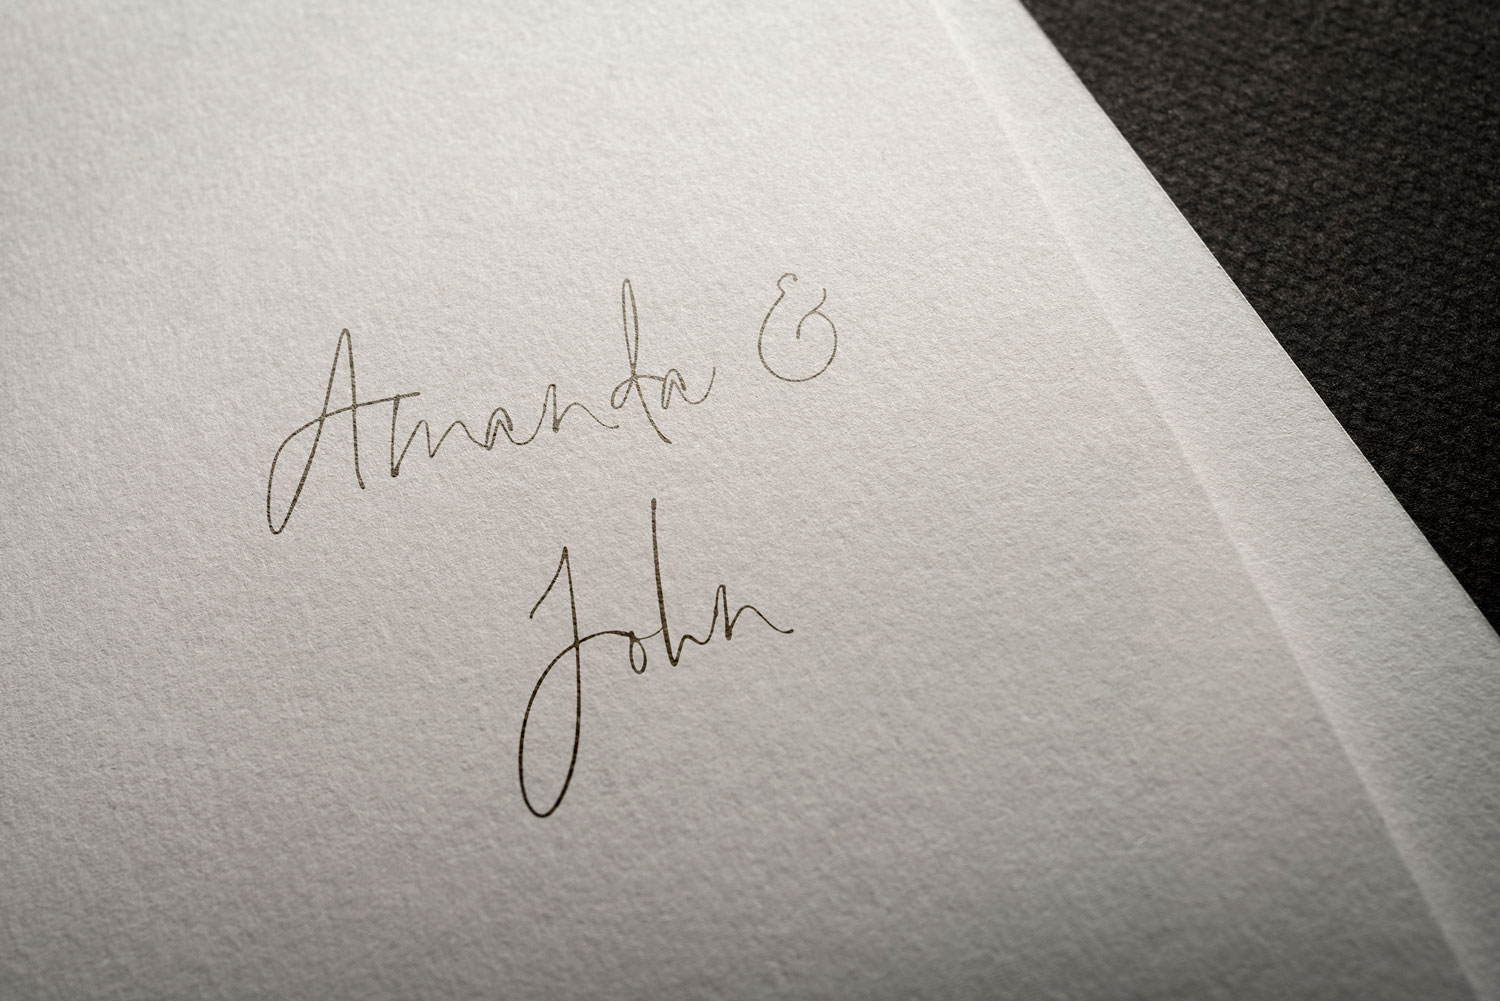 Amanda &
John